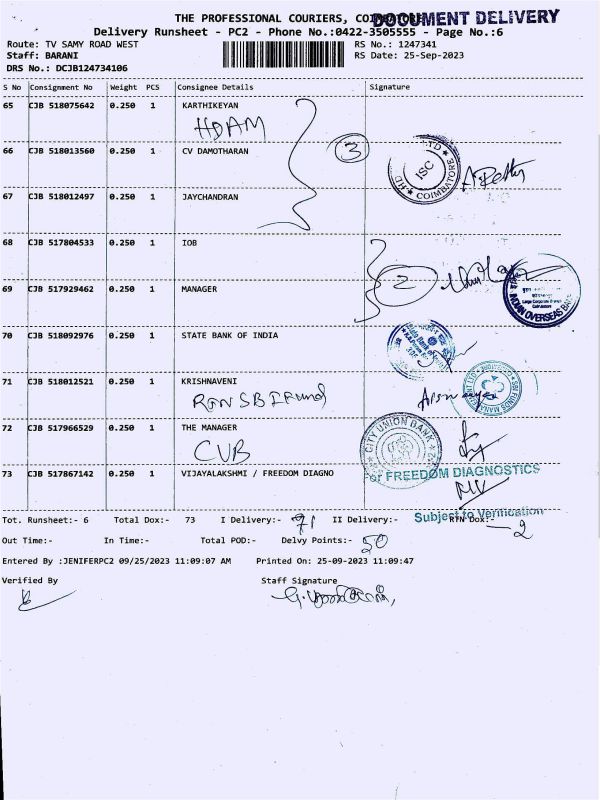 THE PROFESSIONAL COURIERS, COIMBATORE
DOCUMENT DELIVERY
Delivery Runsheet - PC2 - Phone No.:0422-3505555 - Page No.:6
Route: TV SAMY ROAD WEST RS No.: 1247341
Staff: BARANI RS Date: 25-Sep-2023
DRS No.: DCJB124734106
S No Consignment No Weight PCS Consignee Details Signature
65 CJB 518075642 0.250 1 KARTHIKEYAN
HDAM
3
66 CJB 518013560 0.250 1 CV DAMOTHARAN
LTD ISC COIMBATORE
67 CJB 518012497 0.250 1 JAYCHANDRAN
68 CJB 517804533 0.250 1 IOB
2
69 CJB 517929462 0.250 1 MANAGER
Large Corporate Branch
Coimbatore
INDIAN OVERSEAS BANK
70 CJB 518092976 0.250 1 STATE BANK OF INDIA
71 CJB 518012521 0.250 1 KRISHNAVENI
RTN SBI Fund
SBI FUNDS MANAGEMENT LTD
72 CJB 517966529 0.250 1 THE MANAGER
CUB
CITY UNION BANK
73 CJB 517867142 0.250 1 VIJAYALAKSHMI / FREEDOM DIAGNO
For FREEDOM DIAGNOSTICS
Subject to Verification
Tot. Runsheet:- 6 Total Dox:- 73 I Delivery:- 71 II Delivery:- RTN Dox:- 2
Out Time:- In Time:- Total POD:- Delvy Points:- 50
Entered By :JENIFERPC2 09/25/2023 11:09:07 AM Printed On: 25-09-2023 11:09:47
Verified By Staff Signature